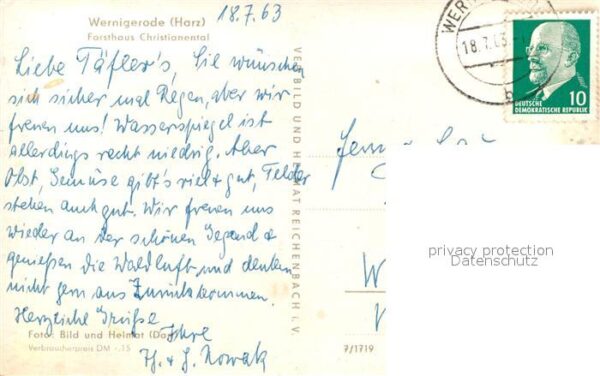 Wernigerode (Harz)
Forsthaus Christianental
18.7.63
Liebe Täfler's, Sie wünschen
sich sicher mal Regen, aber wir
freuen uns! Wasserspiegel ist
allerdings recht niedrig. Aber
Obst, Gemüse gibt's viel + gut, Felder
stehen auch gut. Wir freuen uns
wieder an der schönen Gegend +
genießen die Waldluft und denken
nicht gern ans Zurückkommen.
Herzliche Grüße
Ihre
H. + J. Nowak
Foto: Bild und Heimat
Verbraucherpreis DM -.15
VERLAG BILD UND HEIMAT REICHENBACH i. V.
7/1719
WER
18.7.63
b
10
DEUTSCHE
DEMOKRATISCHE REPUBLIK
privacy protection
Datenschutz